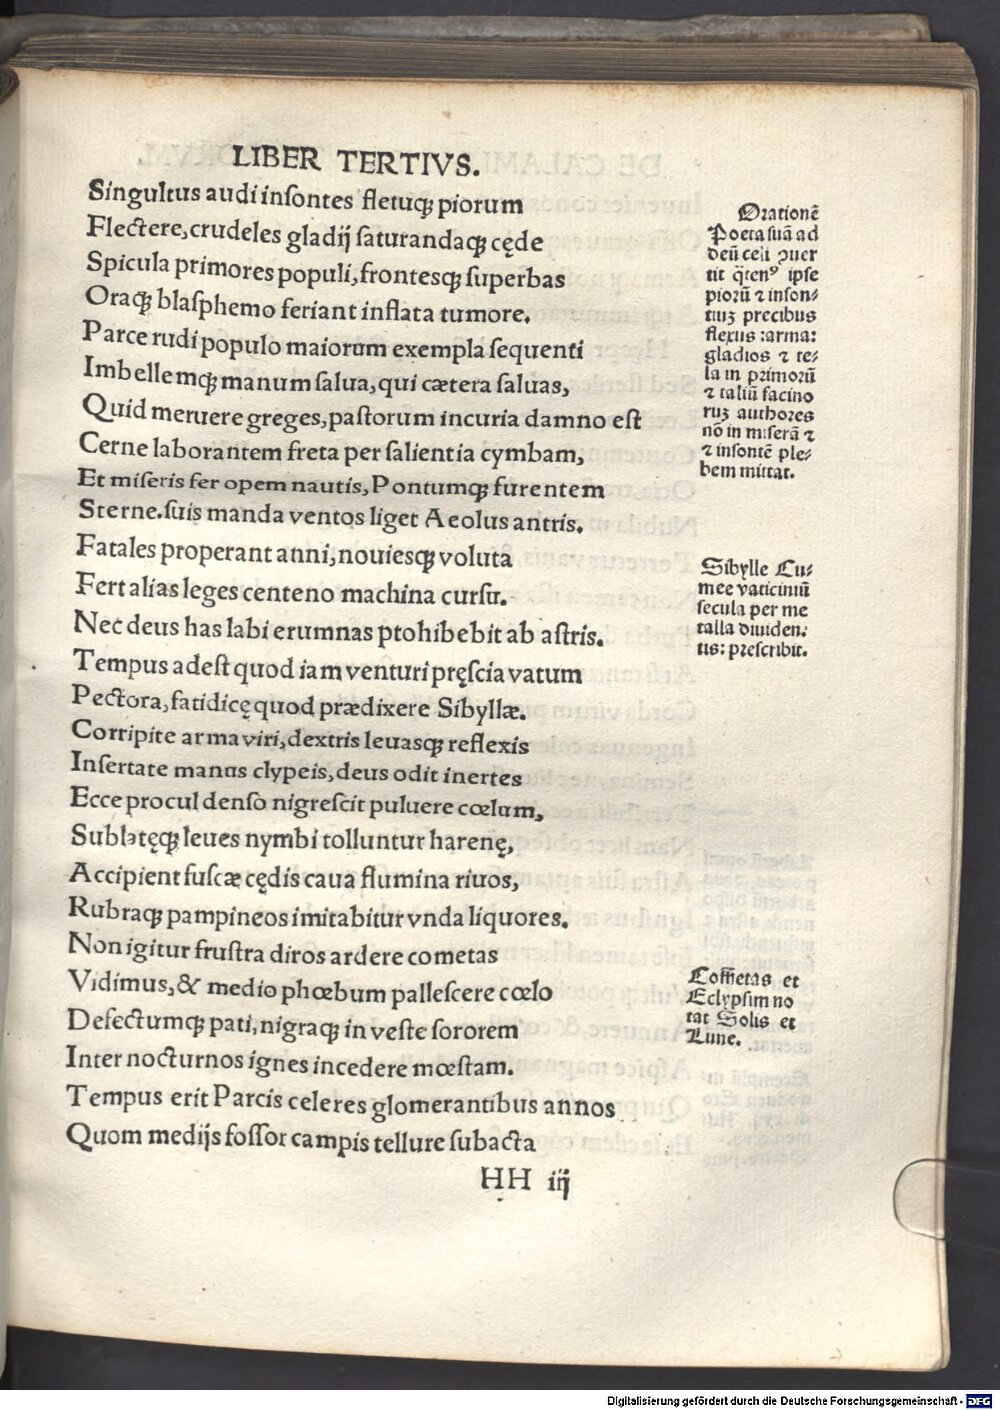 LIBER TERTIVS.
Singultus audi insontes fletuqꝫ piorum
Flectere, crudeles gladij saturandaqꝫ cęde
Spicula primores populi, frontesqꝫ superbas
Oraqꝫ blasphemo feriant inflata tumore.
Parce rudi populo maiorum exempla sequenti
Imbellemqꝫ manum salua, qui cætera saluas,
Quid meruere greges, pastorum incuria damno est
Cerne laborantem freta per salientia cymbam,
Et miseris fer opem nautis, Pontumqꝫ furentem
Sterne. suis manda ventos liget Aeolus antris.
Fatales properant anni, nouiesqꝫ voluta
Fert alias leges centeno machina cursu.
Nec deus has labi erumnas ptohibebit ab astris.
Tempus adest quod iam venturi pręscia vatum
Pectora, fatidicę quod prædixere Sibyllæ.
Corripite arma viri, dextris leuasqꝫ reflexis
Insertate manus clypeis, deus odit inertes
Ecce procul denso nigrescit puluere cœlum,
Sublatęqꝫ leues nymbi tolluntur harenę,
Accipient fuscæ cędis caua flumina riuos,
Rubraqꝫ pampineos imitabitur vnda liquores.
Non igitur frustra diros ardere cometas
Vidimus, & medio phœbum pallescere cœlo
Defectumqꝫ pati, nigraqꝫ in veste sororem
Inter nocturnos ignes incedere mœstam.
Tempus erit Parcis celeres glomerantibus annos
Quom medijs fossor campis tellure subacta
HH iij
Orationē
Poeta suā ad
deū celi ꝯuer
tit q̄tenꝰ ipse
piorū ⁊ inson⸗
tiuꝫ precibus
flexus :arma:
gladios ⁊ te⸗
la in primorū
⁊ taliū facino
ruꝫ authores
nō in miserā ⁊
⁊ insontē ple⸗
bem mittat.
Sibylle Cu⸗
mee vaticiniū
secula per me
talla diuiden⸗
tis: prescribit.
Com̄etas et
Eclypsim no
tat Solis et
Lune.
Digitalisierung gefördert durch die Deutsche Forschungsgemeinschaft - DFG